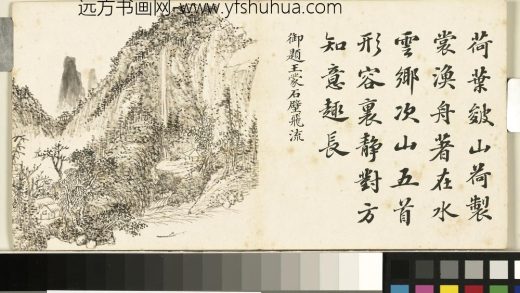 远方书画网-www.yfshuhua.com
荷葉皴山荷製
裳漁舟著在水
雲鄉次山五首
形容裏静對方
知意趣長
御題王蒙石壁飛流